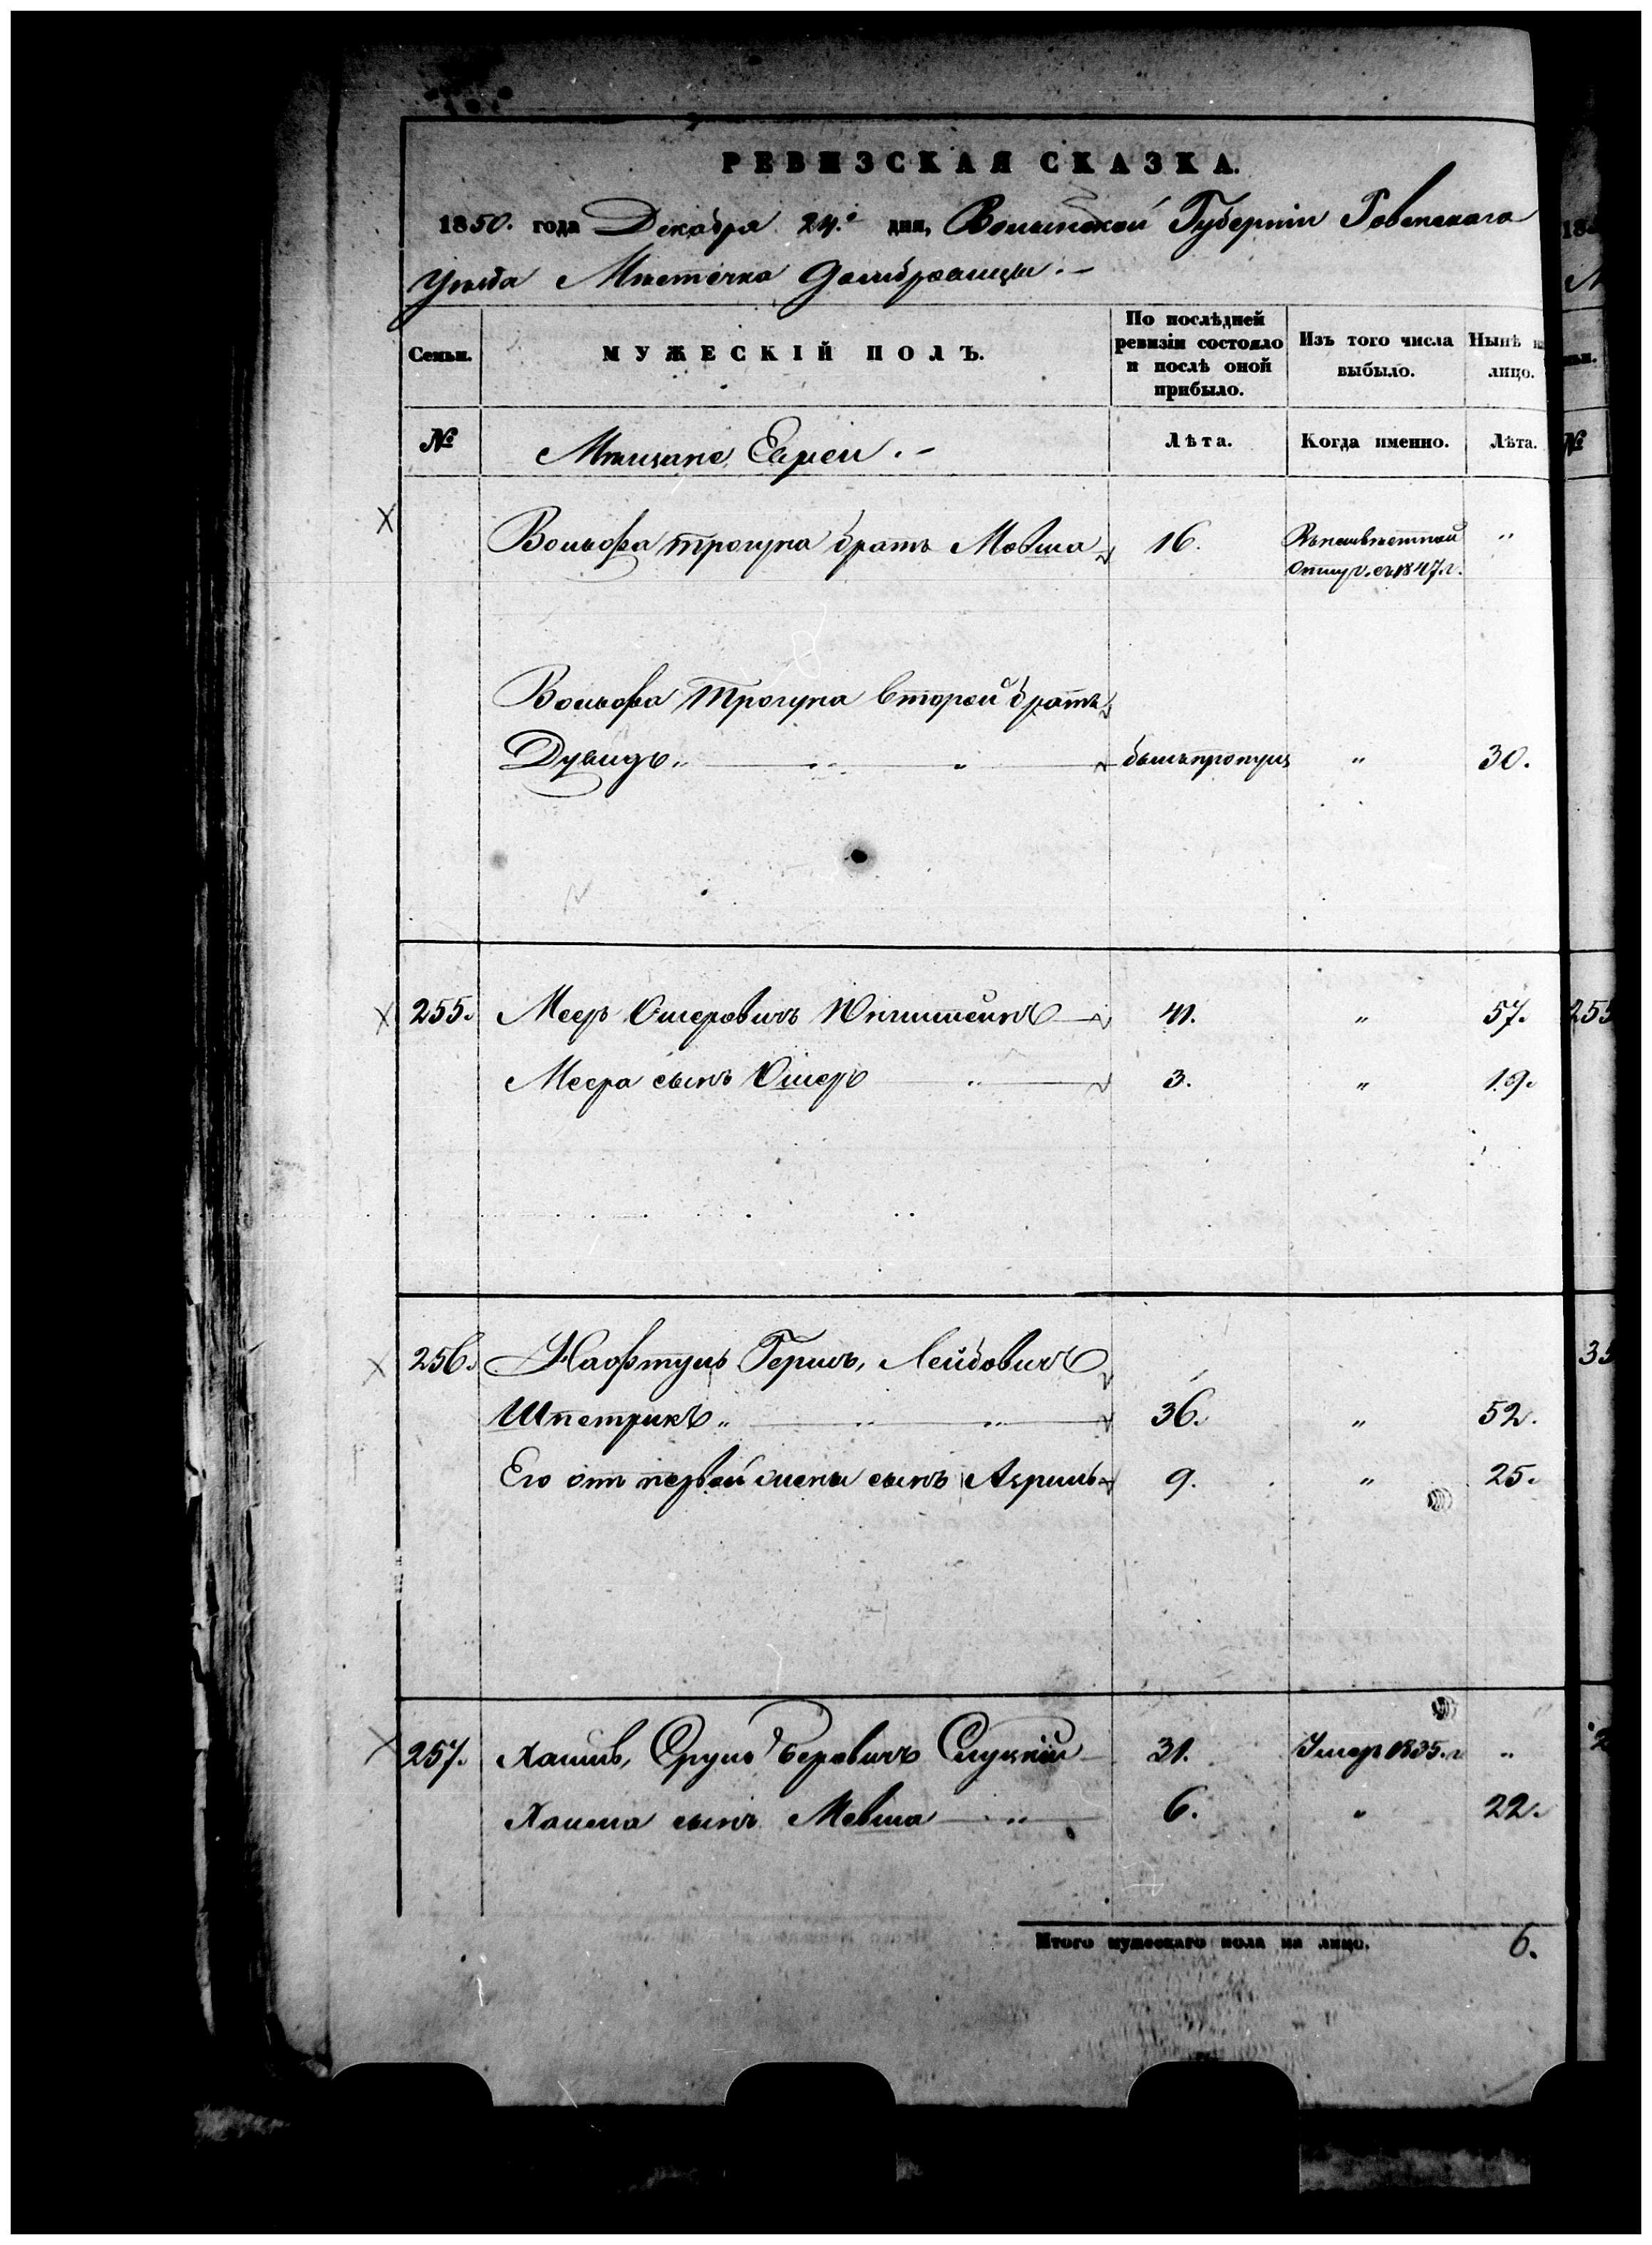 РЕВИЗСКАЯ СКАЗКА.
1850. года Декабря 24.го дня, Волынской Губерніи Ровенскаго
Уѣзда Мѣстечка Домбровицы.
Семьи.
МУЖЕСКІЙ ПОЛЪ.
По послѣдней ревизіи состояло и послѣ оной прибыло.
Изъ того числа выбыло.
Нынѣ на лицо.
№
Мѣщане Евреи.
Лѣта.
Когда именно.
Лѣта.
Вольфа братъ Мовша 16. съ 1847.г. "
Вольфа второй братъ
Дувидъ " " былъ пропущ " 30.
255. Меер Ошеровичъ 41. " 57. 255
Меера сынъ Ошеръ " 3. " 19.
256. Нафтуль Гершъ, Лейбовичъ
Шпетрикъ " " " 36. " 52.
Его отъ первой жены сынъ 9. " 25.
257. Хаимъ, Сруль Беровичъ Слуцкій 31. Умер 1835.г "
Хаима сынъ Мовша " 6. " 22.
Итого мужескаго пола на лицо. 6.